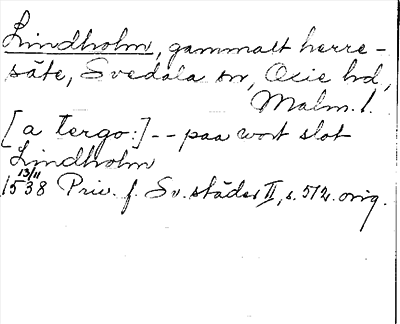 Lindholm, gammalt herre-
säte, Svedala sn, Oxie hd,
Malm. l.
[a tergo:] -- paa wort slot
Lindholm
13/11
1538 Priv. f. Sv. städer II, s. 512. orig.